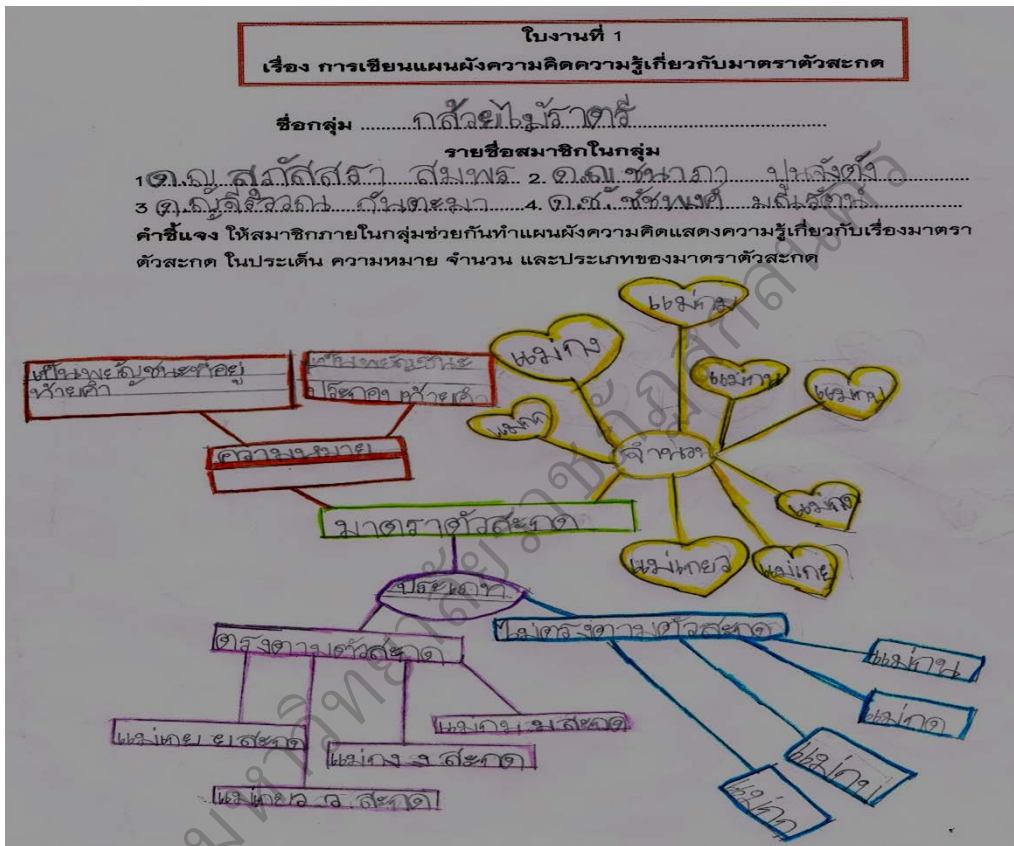 ใบงานที่ 1
เรื่อง การเขียนแผนผังความคิดความรู้เกี่ยวกับมาตราตัวสะกด
ชื่อกลุ่ม กล้วยไม้ราตรี
รายชื่อสมาชิกในกลุ่ม
1 ด.ญ. สุภัสสรา สมพร 2. ด.ญ. ชนาภา
3 กันตะมา 4. ด.ช. ชัชพงศ์ มณีรัตน์
คำชี้แจง ให้สมาชิกภายในกลุ่มช่วยกันทำแผนผังความคิดแสดงความรู้เกี่ยวกับเรื่องมาตรา
ตัวสะกด ในประเด็น ความหมาย จำนวน และประเภทของมาตราตัวสะกด
เป็นพยัญชนะที่อยู่
ท้ายคำ
เป็นพยัญชนะ
ประกอบ ท้ายคำ
ความหมาย
มาตราตัวสะกด
จำนวน
แม่กง
แม่กม
แม่เกย
แม่เกอว
ประเภท
ตรงตามตัวสะกด
แม่เกย ย สะกด
แม่เกอว ว สะกด
แม่กง ง สะกด
แม่กม ม สะกด
ไม่ตรงตามตัวสะกด
แม่กน
แม่กด
แม่กบ
แม่กก
มหาวิทยาลัยราชภัฏสกลนคร